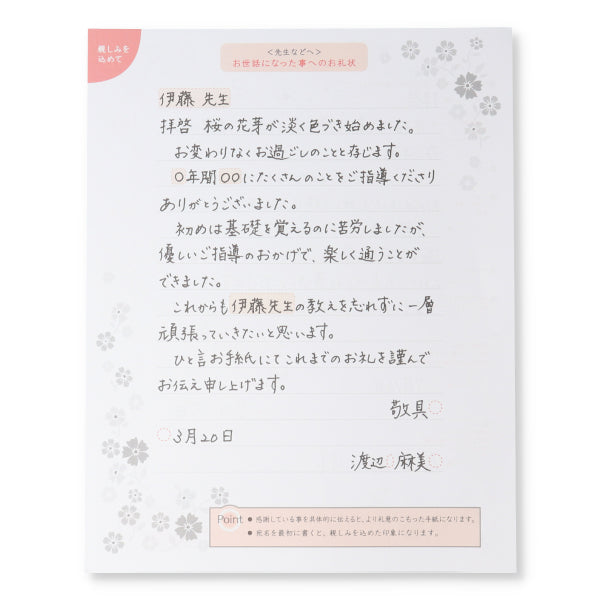 親しみを
込めて
<先生などへ>
お世話になった事へのお礼状
伊藤 先生
拝啓 桜の花芽が淡く色づき始めました。
お変わりなくお過ごしのことと存じます。
○年間○○にたくさんのことをご指導くださり
ありがとうございました。
初めは基礎を覚えるのに苦労しましたが、
優しいご指導のおかげで、楽しく通うことが
できました。
これからも伊藤先生の教えを忘れずに一層
頑張っていきたいと思います。
ひと言お手紙にてこれまでのお礼を謹んで
お伝え申し上げます。
敬具
3月20日
渡辺 麻美
Point ●感謝している事を具体的に伝えると、より礼意のこもった手紙になります。
●宛名を最初に書くと、親しみを込めた印象になります。